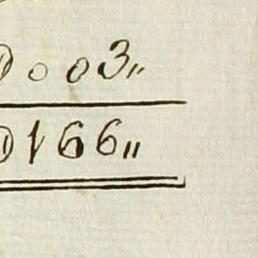 003〃
166〃